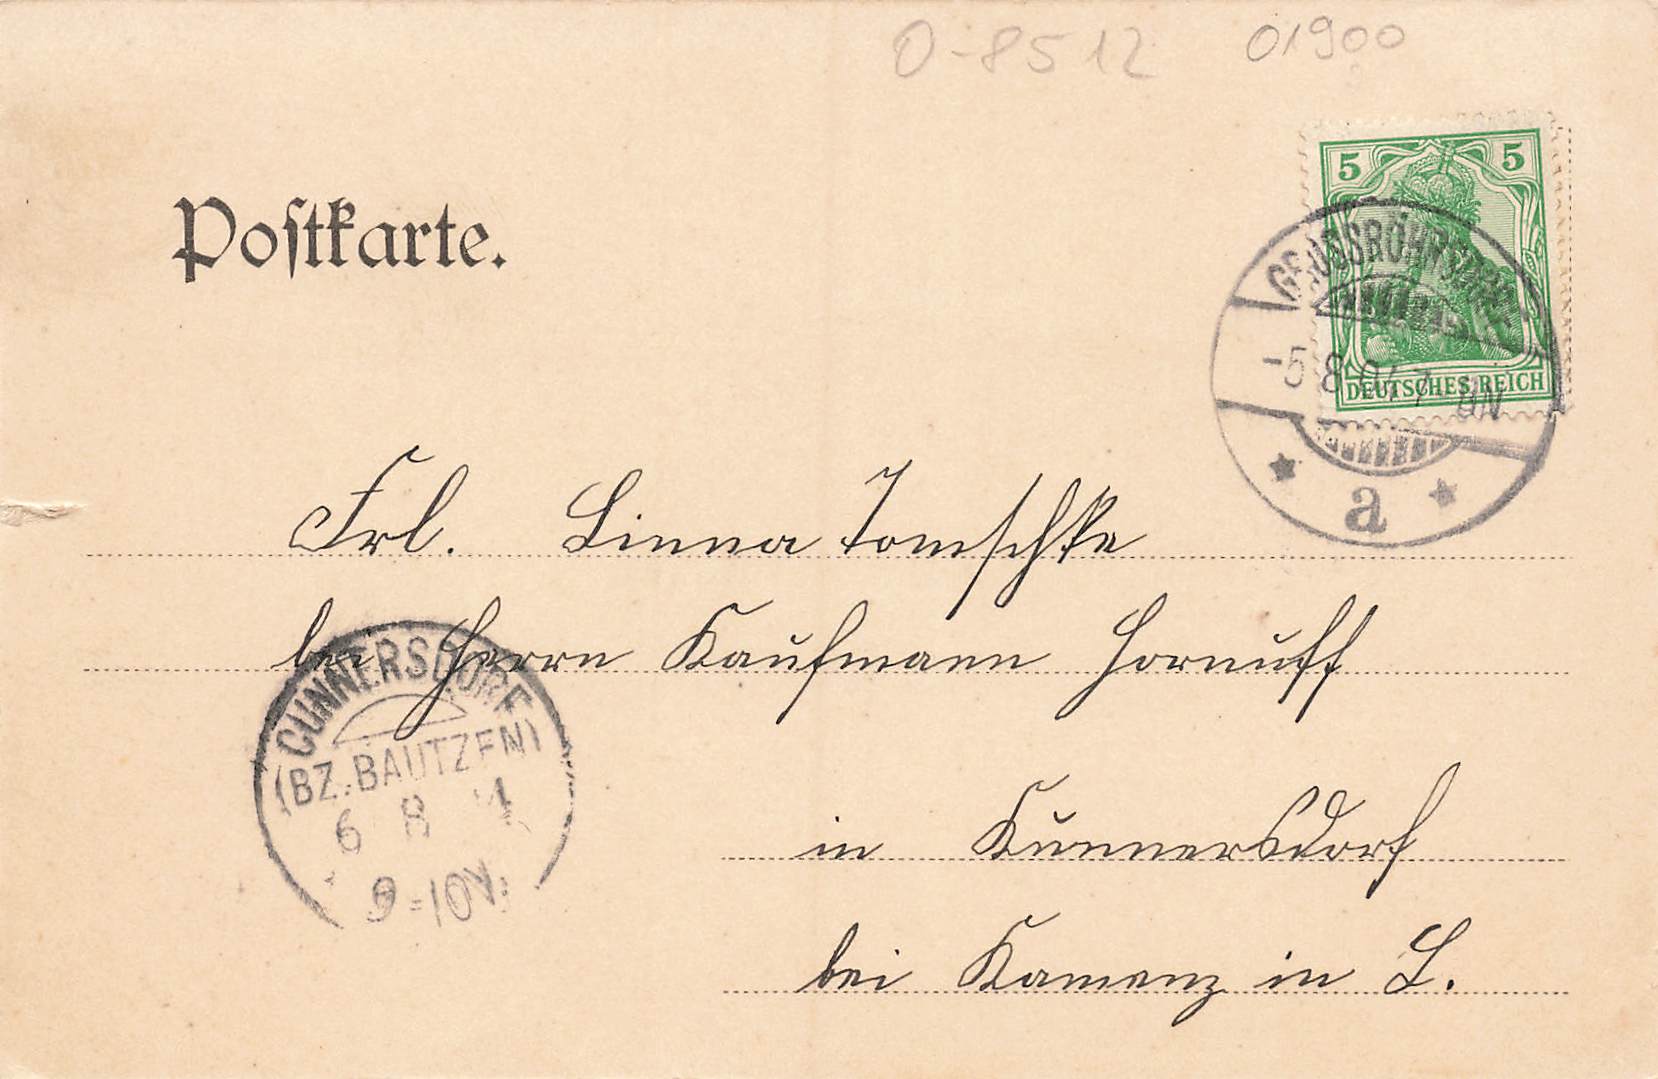 O-8512 01900
Postkarte.
5 5
GROSSRÖHRSDORF
-5 8 04 7 8N
DEUTSCHES REICH
* a *
Frl. Linna Tomschke
bei Herrn Kaufmann Hornuff
in Kunnersdorf
bei Kamenz in S.
CUNNERSDORF
(BZ. BAUTZEN)
6 8 4
9-10V.